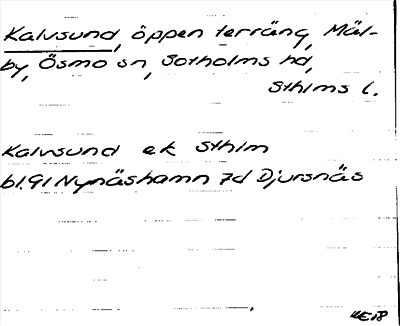 Kalvsund, öppen terräng, Mäl-
by, Ösmo sn, Sotholms hd,
Sthlms l.
Kalvsund ek Sthlm
bl.91 Nynäshamn 7d Djursnäs